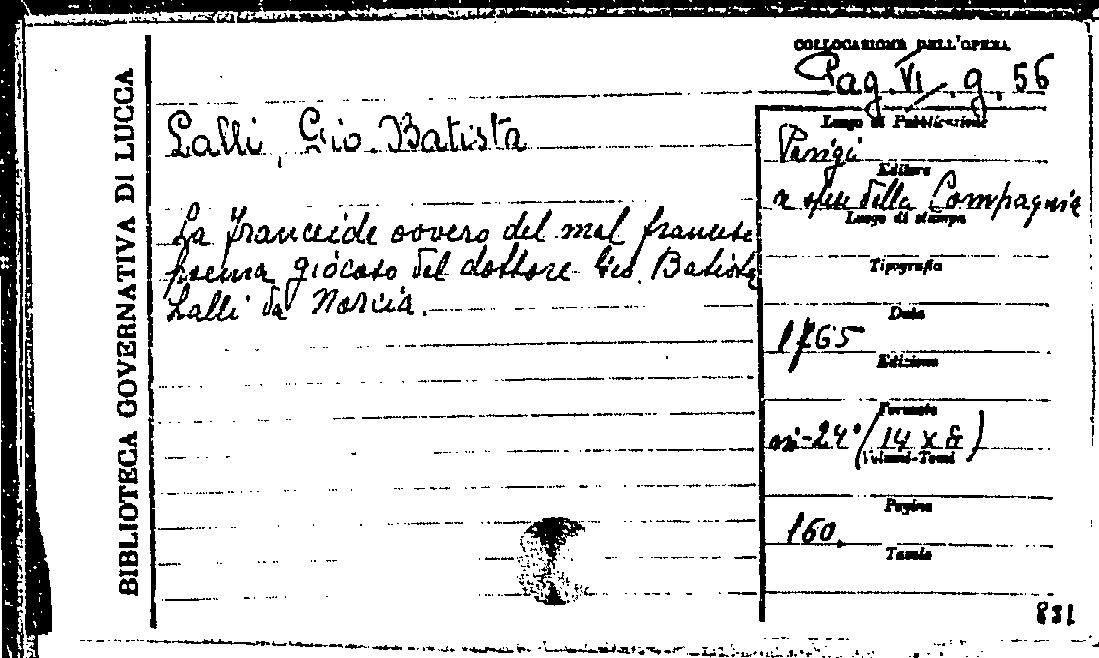 BIBLIOTECA GOVERNATIVA DI LUCCA
COLLOCAZIONE DELL'OPERA
Pag. VI. g. 56
Lalli, Gio. Batista
La Franceide ovvero del mal francese
poema giocoso del dottore Gio. Batista
Lalli da Norcia.
Luogo di Pubblicazione
Parigi
Editore
a spese della Compagnia
Luogo di stampa
Tipografia
Data
1765
Edizione
Formato
in-24° (14 x 8)
Volumi-Tomi
Pagine
160.
Tavole
831